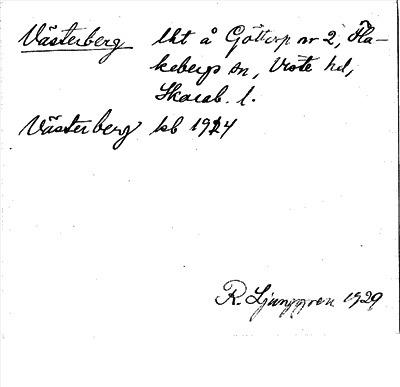 Västerberg lht å Götterp nr 2, Ha-
kebergs sn, Viste hd,
Skarab. l.
Västerberg kb 1924
R. Ljunggren 1929